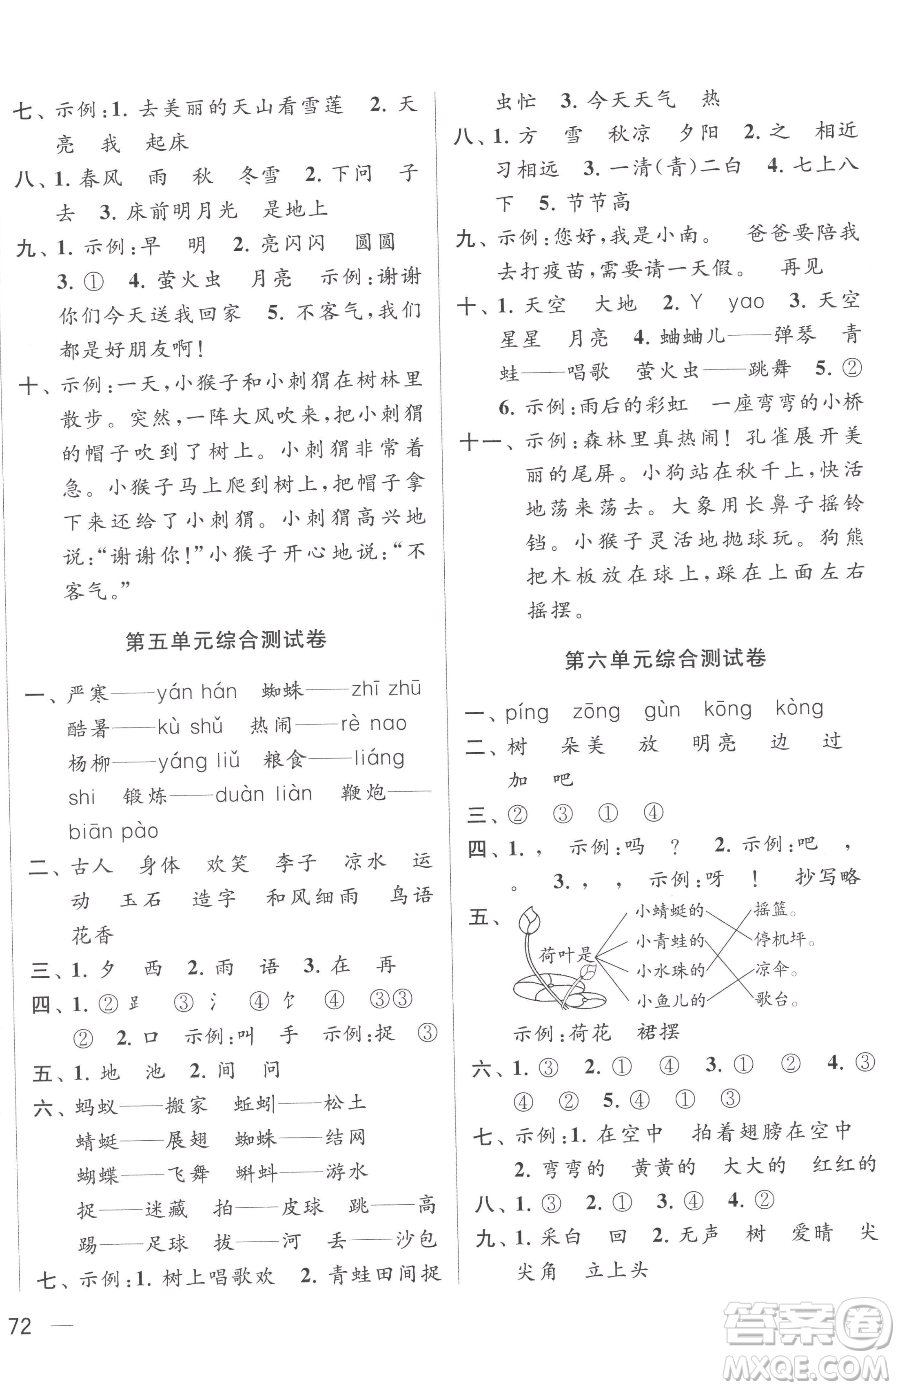 七、示例:1. 去美丽的天山看雪莲 2. 天
亮 我 起床
八、1. 春风 雨 秋 冬雪 2. 下问 子
去 3. 床前明月光 是地上
九、1. 示例:早 明 2. 亮闪闪 圆圆
3. ① 4. 萤火虫 月亮 示例:谢谢
你们今天送我回家 5. 不客气,我们
都是好朋友啊!
十、示例:一天,小猴子和小刺猬在树林里
散步。突然,一阵大风吹来,把小刺猬
的帽子吹到了树上。小刺猬非常着
急。小猴子马上爬到树上,把帽子拿
下来还给了小刺猬。小刺猬高兴地
说:“谢谢你!”小猴子开心地说:“不
客气。”
第五单元综合测试卷
一、严寒——yán hán 蜘蛛——zhī zhū
酷暑——kù shǔ 热闹——rè nao
杨柳——yáng liǔ 粮食——liáng
shi 锻炼——duàn liàn 鞭炮——
biān pào
二、古人 身体 欢笑 李子 凉水 运
动 玉石 造字 和风细雨 鸟语
花香
三、1. 夕 西 2. 雨 语 3. 在 再
四、1. ② ⻊ ③ 氵 ④ 饣 ② ④③③
② 2. 口 示例:叫 手 示例:捉 ③
五、1. 地 池 2. 间 问
六、蚂蚁——搬家 蚯蚓——松土
蜻蜓——展翅 蜘蛛——结网
蝴蝶——飞舞 蝌蚪——游水
捉——迷藏 拍——皮球 跳——高
踢——足球 拔——河 丢——沙包
七、示例:1. 树上唱歌欢 2. 青蛙田间捉
72
虫忙 3. 今天天气 热
八、1. 方 雪 秋凉 夕阳 2. 之 相近
习相远 3. 一清(青)二白 4. 七上八
下 5. 节节高
九、示例:您好,我是小南。 爸爸要陪我
去打疫苗,需要请一天假。 再见
十、1. 天空 大地 2. Y yao 3. 天空
星星 月亮 4. 蛐蛐儿——弹琴 青
蛙——唱歌 萤火虫——跳舞 5. ②
6. 示例:雨后的彩虹 一座弯弯的小桥
十一、示例:森林里真热闹!孔雀展开美
丽的尾屏。小狗站在秋千上,快活
地荡来荡去。大象用长鼻子摇铃
铛。小猴子灵活地抛球玩。狗熊
把木板放在球上,踩在上面左右
摇摆。
第六单元综合测试卷
一、píng zōng gùn kōng kòng
二、树 朵美 放 明亮 边 过
加 吧
三、② ③ ① ④
四、1. , 示例:吗 ? 2. 示例:吧 ,
。 3. , , 示例:呀 ! 抄写略
五、荷叶是 小蜻蜓的 摇篮。
小青蛙的 停机坪。
小水珠的 凉伞。
小鱼儿的 歌台。
示例:荷花 裙摆
六、1. ③ ① 2. ④ ③ 3. ① ② 4. ③
④ ② 5. ④ ③ ① ②
七、示例:1. 在空中 拍着翅膀在空中
2. 弯弯的 黄黄的 大大的 红红的
八、1. ③ 2. ① ③ 3. ② ① 4. ②
九、1. 采白 回 2. 无声 树 爱晴 尖
尖角 立上头
答案圈
MXQE.COM